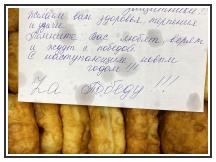 Желаем вам здоровья, терпения
и удачи.
Помните Вас любят, верят
и ждут с победой.
С наступающим новым
годом!!!
Zа победу!!!